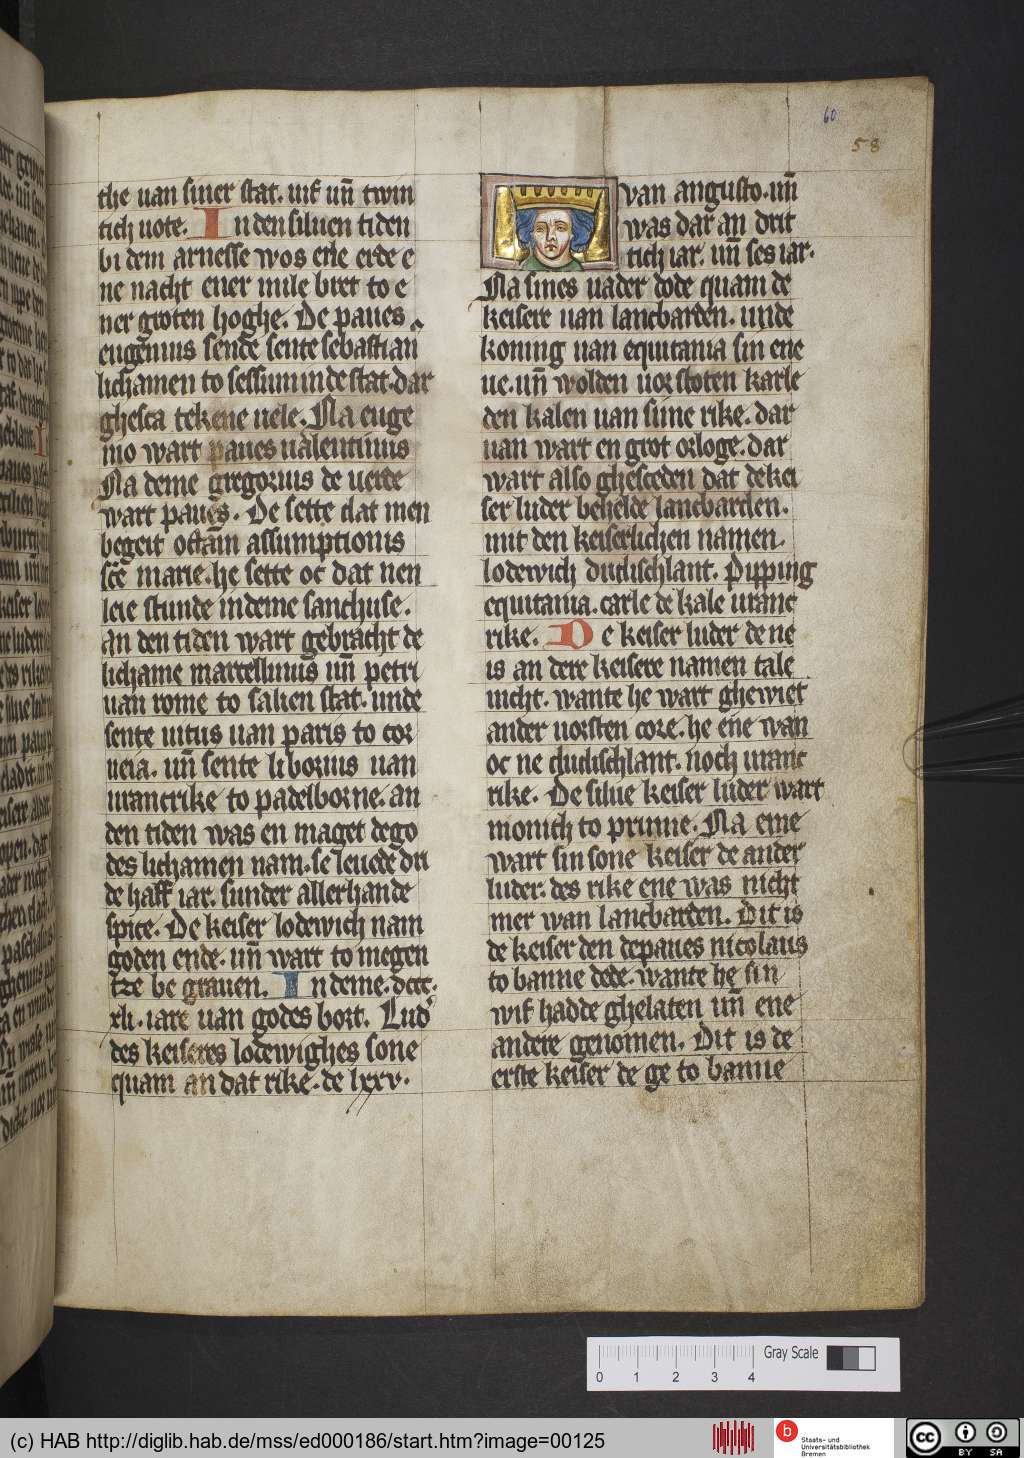 the uan siner stat. uif un̄ twin
tich uote. In den siluen tiden
bi dem arnesse wos erle erde e
ne nacht ener mile bret to e
ner groten hoghe. De paues
eugenius sende sente sebastian
lichamen to sessium in de stat. dar
ghesca tekene uele. Na euge
nio wart paues ualentinus
Na deme gregorius de uerde
wart paues. De sette dat men
begeit octām assumptionis
sc̄e marie. he sette oc dat nen
leie stunde in deme sanchuse.
an den tiden wart gebracht de
lichame marcellinus un̄ petri
uan rome to salien stat. unde
sente uitus uan paris to cor
ueia. un̄ sente liborius uan
urancrike to padelborne. an
den tiden was en maget de go
des lichamen nam. se leuede dri
de half iar. sunder allerhande
spice. De keiser lodewich nam
goden ende. un̄ wart to megen
tze be grauen. In deme. dccc.
xli. iare uan godes bort. Lud
des keiseres lodewighes sone
quam an dat rike. de lxxv.
uan angusto. un̄
was dar an drit
tich iar. un̄ ses iar.
Na sines uader dode quam de
keisere uan lancbarden. unde
koning uan equitania sin ene
ue. un̄ wolden uorstoten karle
den kalen uan sime rike. dar
uan wart en grot orloge. dar
wart also ghesceden dat de kei
ser luder behelde lancbarden.
mit den keiserlichen namen.
lodewich dudischlant. Pipping
equitania. carle de kale uranc
rike. De keiser luder de ne
is an dere keisere namen tale
nicht. wante he wart ghewiet
ander uorsten core. he ene wan
oc ne dudischlant. noch uranc
rike. De silue keiser luder wart
monich to prume. Na eme
wart sin sone keiser de ander
luder. des rike ene was nicht
mer wan lancbarden. Dit is
de keiser den de paues nicolaus
to banne dede. wante he sin
wif hadde ghelaten un̄ ene
andere genomen. Dit is de
erste keiser de ge to banne
60
58
Gray Scale
0 1 2 3 4
(c) HAB http://diglib.hab.de/mss/ed000186/start.htm?image=00125
b
Staats- und
Universitätsbibliothek
Bremen
cc
BY SA